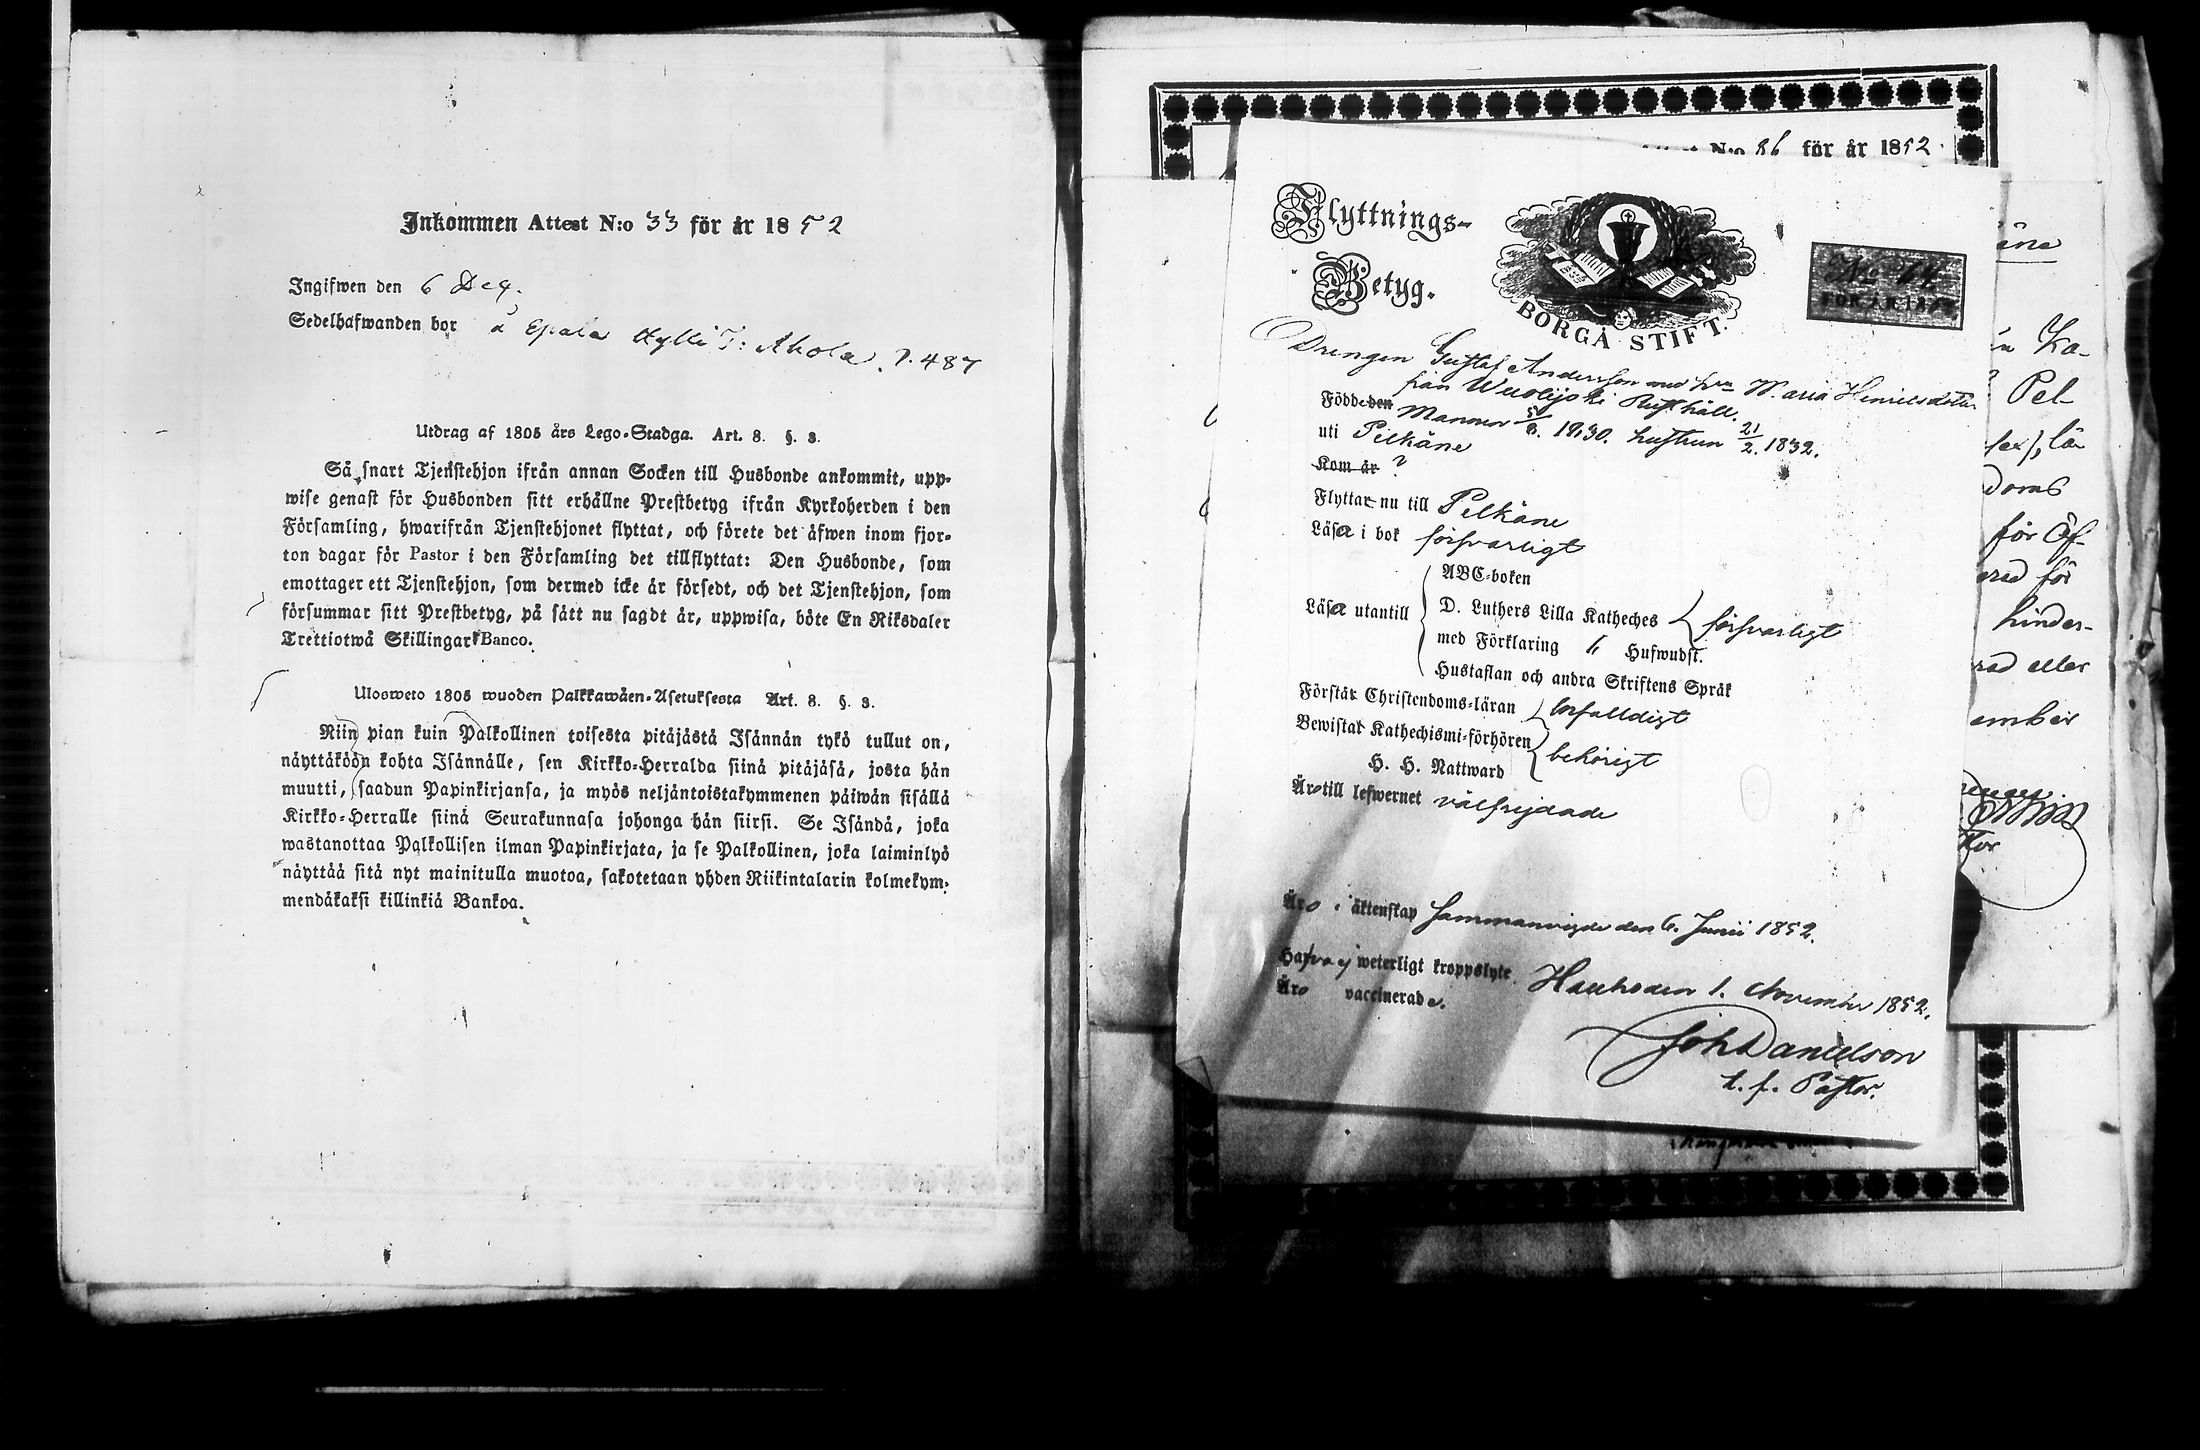 Inkommen Attest N:o 33 för år 1852
Ingifwen den 6 Dec.
Sedelhafwanden bor å Epala Kylli T: Ahola. p. 487
Utdrag af 1805 års Lego-Stadga. Art. 8. §. 3.
Så snart Tjenstehjon ifrån annan Socken till Husbonde ankommit, upp-
wise genast för Husbonden sitt erhållne Prestbetyg ifrån Kyrkoherden i den
Församling, hwarifrån Tjenstehjonet flyttat, och förete det äfwen inom fjor-
ton dagar för Pastor i den Församling det tillflyttat: Den Husbonde, som
emottager ett Tjenstehjon, som dermed icke är försedt, och det Tjenstehjon, som
försummar sitt Prestbetyg, på sätt nu sagdt är, uppwisa, böte En Riksdaler
Trettiotwå Skillingar Banco.
Ulosweto 1805 wuoden Palkkawäen-Asetuksesta Art. 8. §. 3.
Niin pian kuin Palkollinen toisesta pitäjästä Isännän tykö tullut on,
näyttäköön kohta Isännälle, sen Kirkko-Herralda siinä pitäjäsä, josta hän
muutti, saadun Papinkirjansa, ja myös neljäntoistakymmenen päiwän sisällä
Kirkko-Herralle siinä Seurakunnasa johonga hän siirsi. Se Isändä, joka
wastanottaa Palkollisen ilman Papinkirjata, ja se Palkollinen, joka laiminlyö
näyttää sitä nyt mainitulla muotoa, sakotetaan yhden Riikintalarin kolmekym-
mendäkaksi killinkiä Bankoa.
N:o 86 för år 1852
Flyttnings-
Betyg.
BORGÅ STIFT.
No 64
FÖR ÅR 1852
Drengen Gustaf Andersson med hru Maria Henricsdotter
från Wuolijoki Rusthåll.
Födde den Mannen 5/8. 1830. hustrun 21/2. 1832.
uti Pelkäne
Kom år ?
Flyttar nu till Pelkäne
Läsa i bok försvarligt
ABC-boken
Läsa utantill D. Luthers Lilla Katheches försvarligt
med Förklaring 6 Hufwudst.
Hustaflan och andra Skriftens Språk
Förstår Christendoms-läran enfalldigt
Bewistat Kathechismi-förhören
H. H. Nattward behörigt
Äro till lefwernet välfrejdade
Äro i äktenskap sammanvigde den 6. Junii 1852.
Hafva ej weterligt kroppslyte
Äro vaccinerade.
Hauho den 1. November 1852.
Joh Danielson
t. f. Pastor.
Ka-
Pel-
doms
för Öf-
för
hinder-
eller
ember